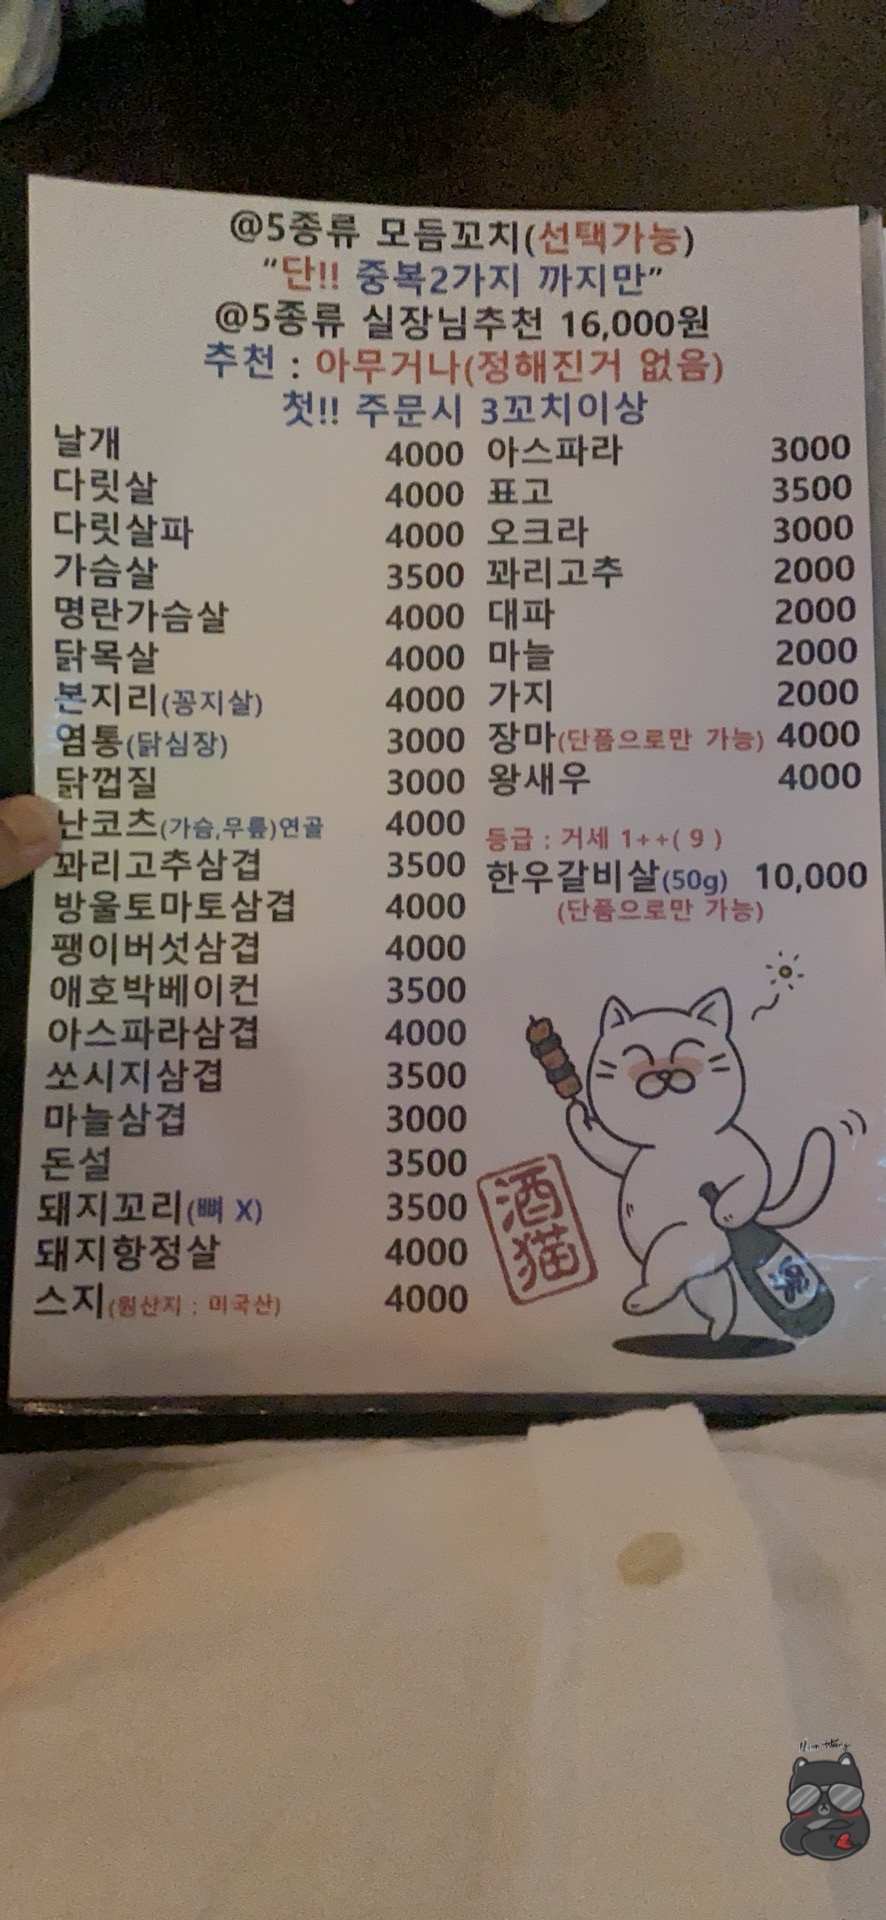 @5종류 모듬꼬치(선택가능)
"단!! 중복2가지 까지만"
@5종류 실장님추천 16,000원
추천 : 아무거나(정해진거 없음)
첫!! 주문시 3꼬치이상
날개 4000
다릿살 4000
다릿살파 4000
가슴살 3500
명란가슴살 4000
닭목살 4000
본지리(꽁지살) 4000
염통(닭심장) 3000
닭껍질 3000
난코츠(가슴,무릎)연골 4000
꽈리고추삼겹 3500
방울토마토삼겹 4000
팽이버섯삼겹 4000
애호박베이컨 3500
아스파라삼겹 4000
쏘시지삼겹 3500
마늘삼겹 3000
돈설 3500
돼지꼬리(뼈 X) 3500
돼지항정살 4000
스지(원산지 : 미국산) 4000
아스파라 3000
표고 3500
오크라 3000
꽈리고추 2000
대파 2000
마늘 2000
가지 2000
장마(단품으로만 가능) 4000
왕새우 4000
등급 : 거세 1++( 9 )
한우갈비살(50g) 10,000
(단품으로만 가능)
酒
猫